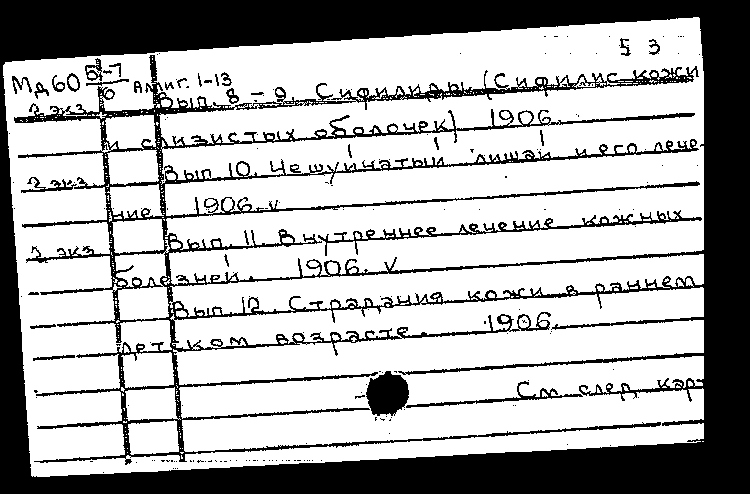 5 3
Мд60 5-7/6 Аллиг. 1-13
2 экз. Вып. 8 - 9. Сифилиды (Сифилис кожи
и слизистых оболочек) 1906.
2 экз. Вып. 10. Чешуйчатый лишай и его лече-
ние 1906. v
2 экз. Вып. 11. Внутреннее лечение кожных
болезней. 1906. v
Вып. 12. Страдания кожи в раннем
детском возрасте. 1906.
См. след. карт